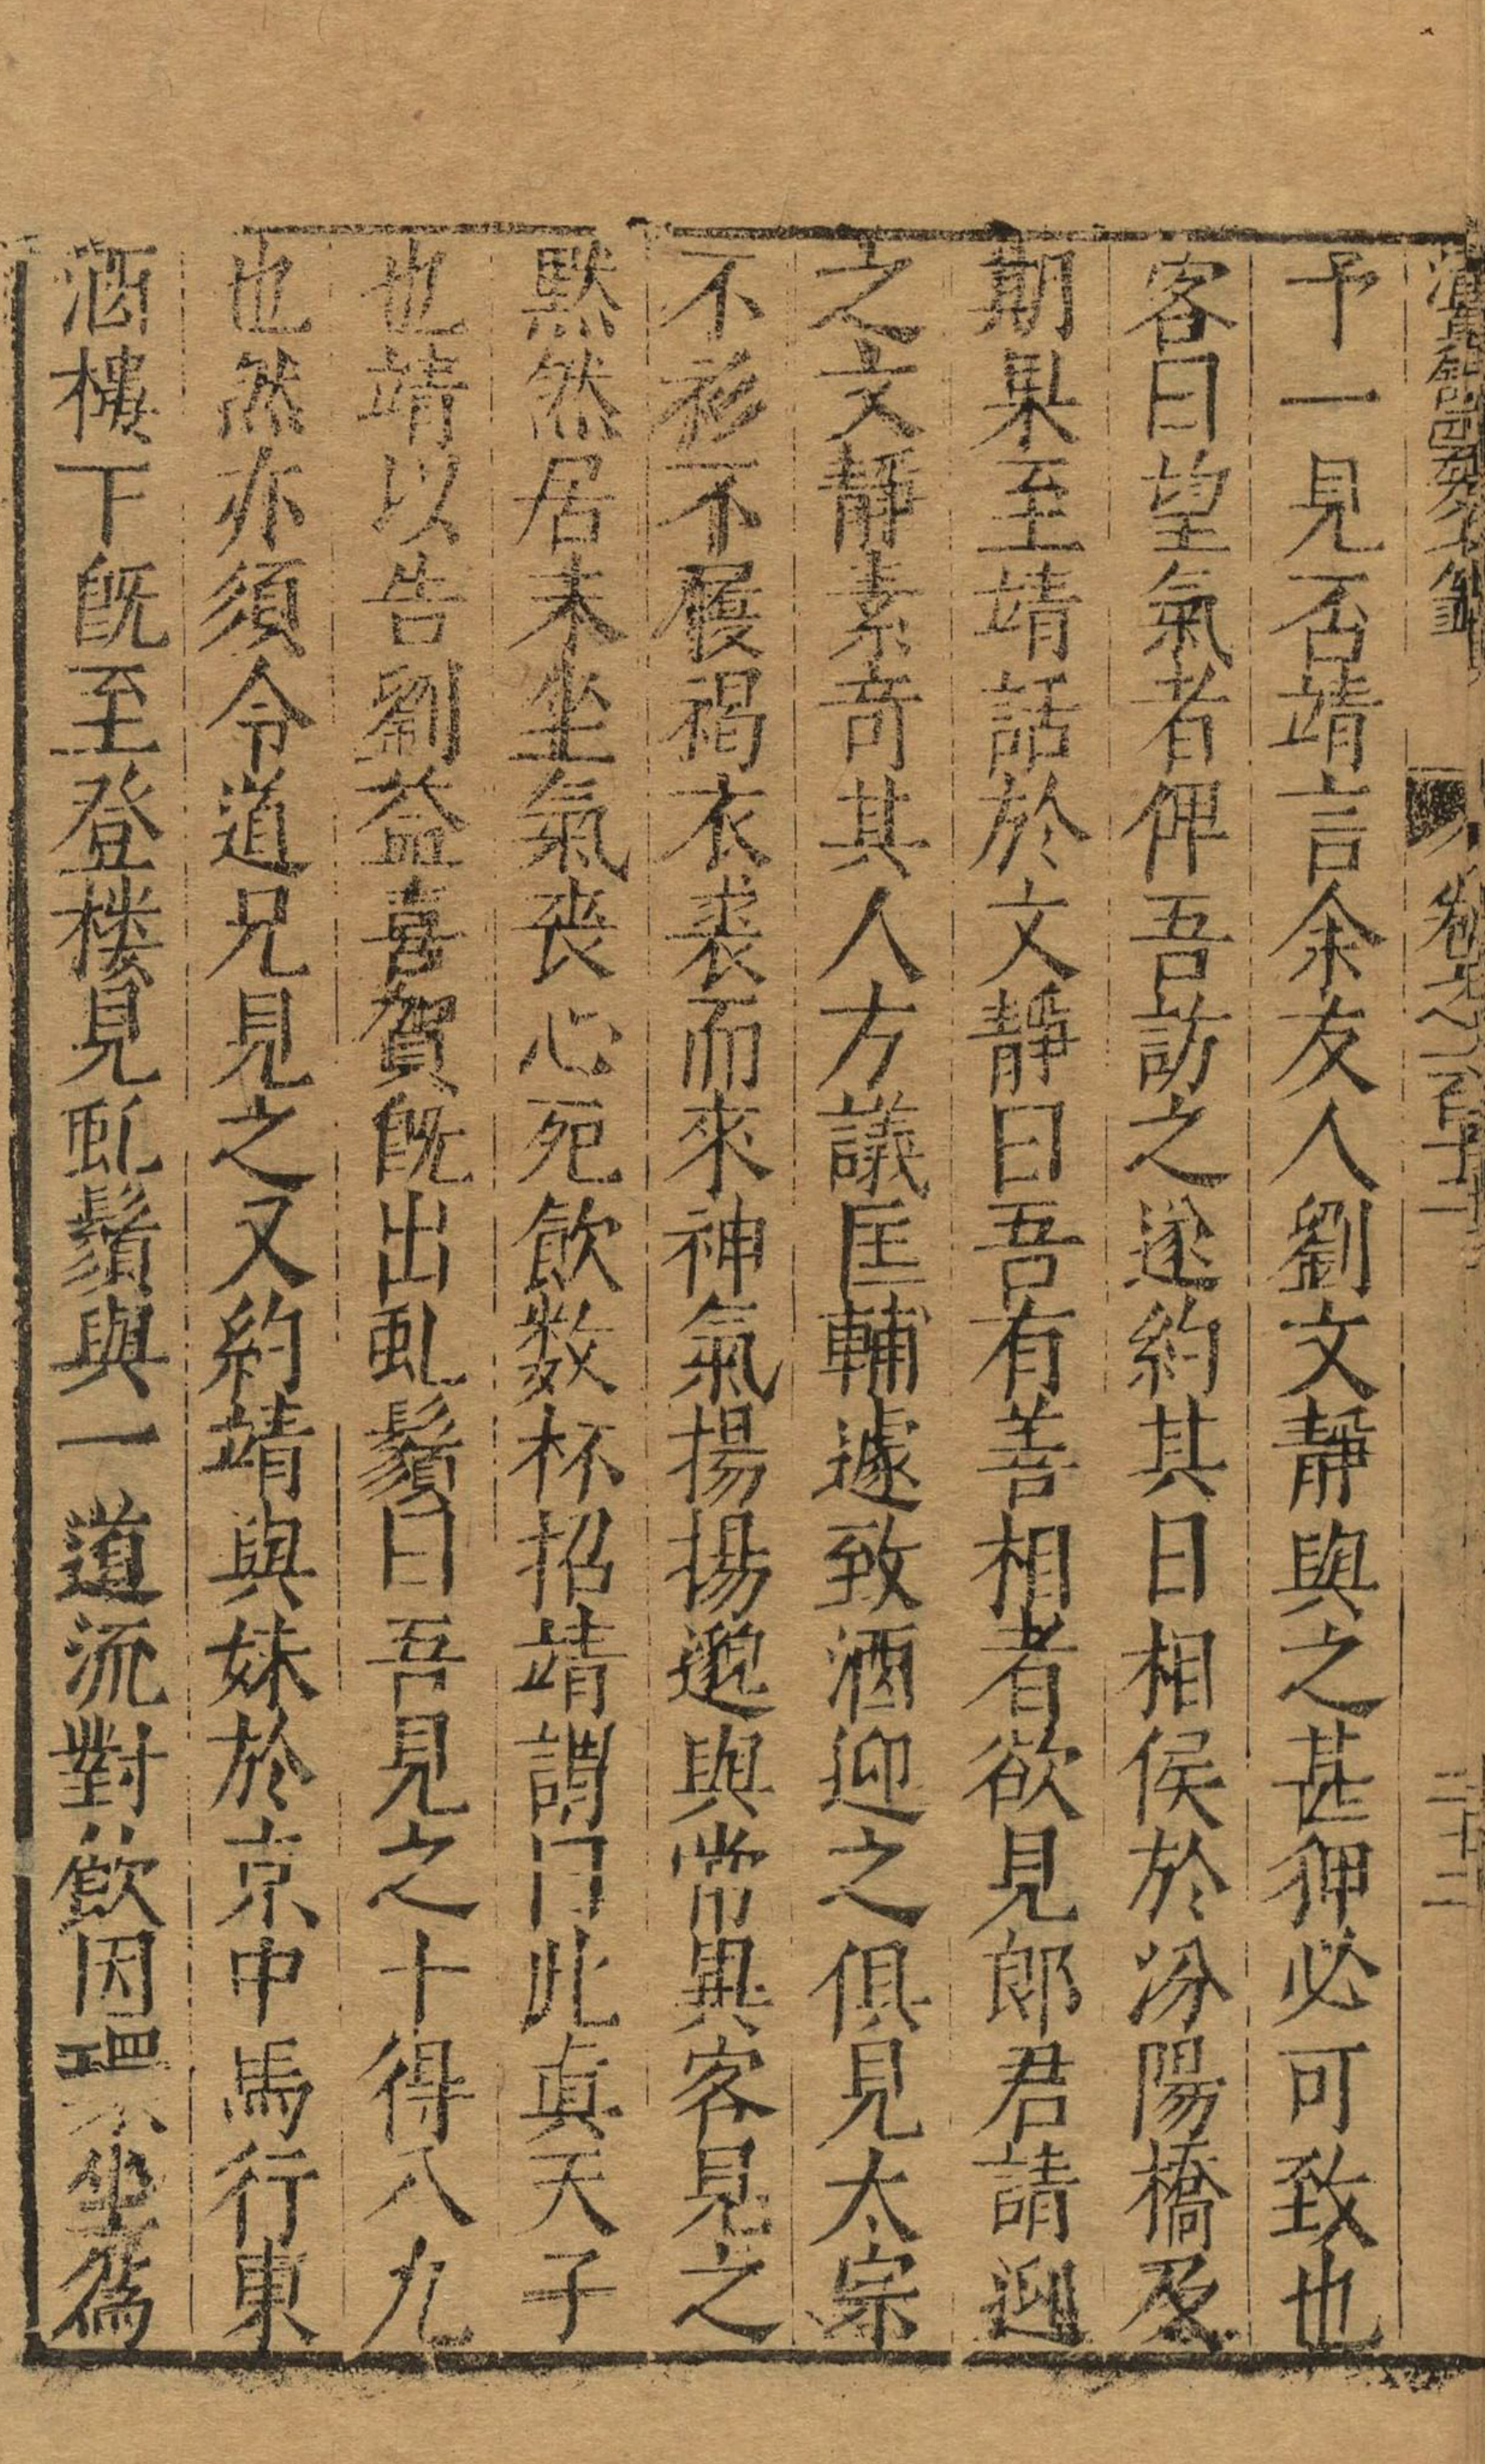 予一見否靖言余友人劉文靜與之甚狎必可致也
客曰望氣者俾吾訪之遂約其日相侯於汾陽橋及
期果至靖話於文靜曰吾有善相者欲見郎君請迎
之文靜素奇其人方議匡輔遽致酒迎之俱見太宗
不衫不履裼衣裘而來神氣揚揚邈與常異客見之
黙然居末坐氣喪心死飲数杯招靖謂曰此真天子
也靖以告劉益喜賀既出虬鬚曰吾見之十得八九
也然亦須令道兄見之又約靖與妹於京中馬行東
酒樓下既至登楼見虬鬚與一道流對飲因環坐爲
卷之
二十二